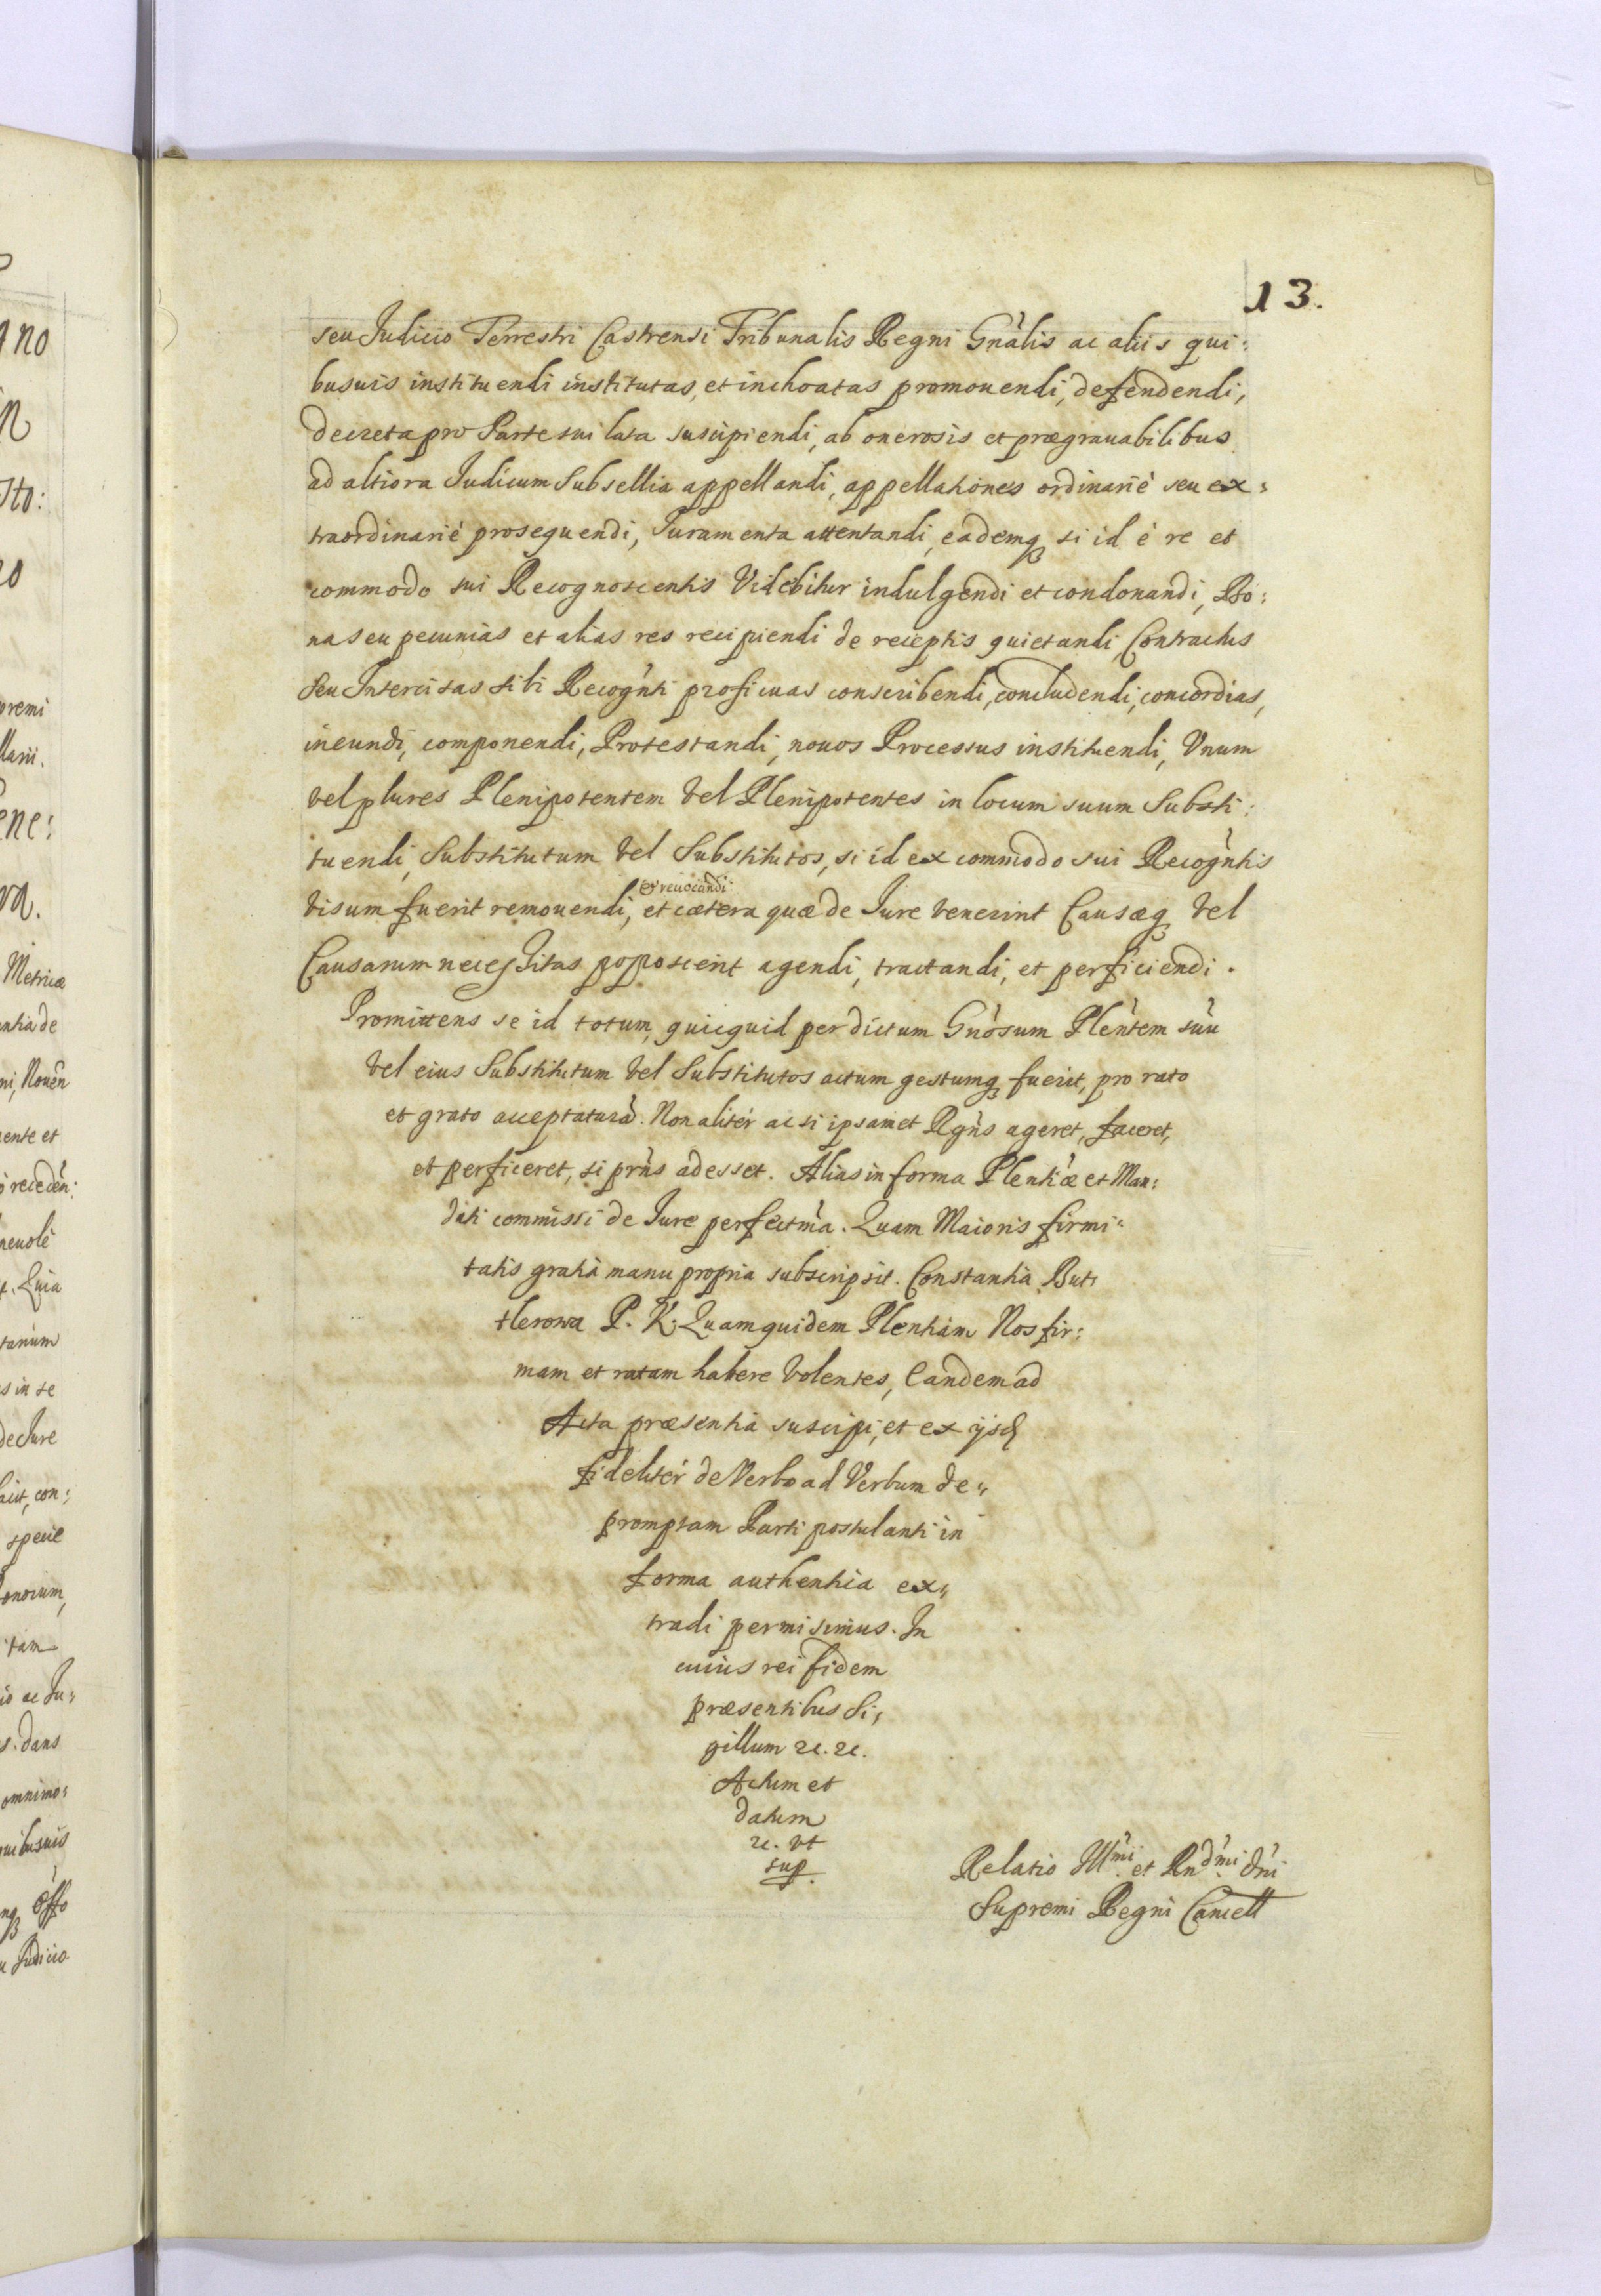 13.
seu Judicio Terrestri Castrensi Tribunalis Regni Gnàlis ac aliis qui:
busuis instituendi institutas, et inchoatas promouendi, defendendi,
decreta pro Parte sui lata suscipiendi, ab onerosis et prægrauabilibus
ad altiora Judicum Subsellia appellandi, appellationes ordinariè seu ex:
traordinariè prosequendi, Juramenta attentandi, eademq3 si id è re et
commodo sui Recognoscentis Videbitur indulgendi et condonandi, Bo:
na seu pecunias et alias res recipiendi de receptis quietandi, Contractus
seu Intercisas sibi Recogǹti proficuas conscribendi, concludendi, concordias,
ineundi, componendi, Protestandi, nouos Processus instituendi, Vnum
vel plures Plenipotentem vel Plenipotentes in locum suum Substi:
tuendi, Substitutum vel Substitutos, si id ex commodo sui Recogǹtis
visum fuerit remouendi, et cætera quæ de Jure venerint Causæq3 vel
& reuocandi
Causarum necessitas poposcerit agendi, tractandi, et perficiendi.
Promittens se id totum, quicquid per dictum Gnòsum Plenǹtem sùu
vel eius Substitutum vel Substitutos actum gestumq3 fuerit, pro rato
et grato acceptaturà. Non alitèr ac si ipsamet Rgǹs ageret, faceret,
et perficeret, si prǹs adesset. Alias in forma Plentiæ̀ et Man:
dati commissi de Jure perfectm̀a. Quam Maioris firmi:
tatis gratià manu propria subscripsit. Constantia But:
tlerowa P. K. Quam quidem Plentiàm Nos fir:
mam et ratam habere volentes, Eandem ad
Acta præsentia suscipi, et ex ijsd
fidelitèr de Verbo ad Verbum de:
promptam Parti postulanti in
forma authentica ex:
tradi permisimus. In
cuius rei fidem
præsentibus Si:
gillum &c. &c.
Actum et
datum
&c. vt
sup.
Relatio Illm̀i et Rndm̀i Dǹi
Supremi Regni Cancell